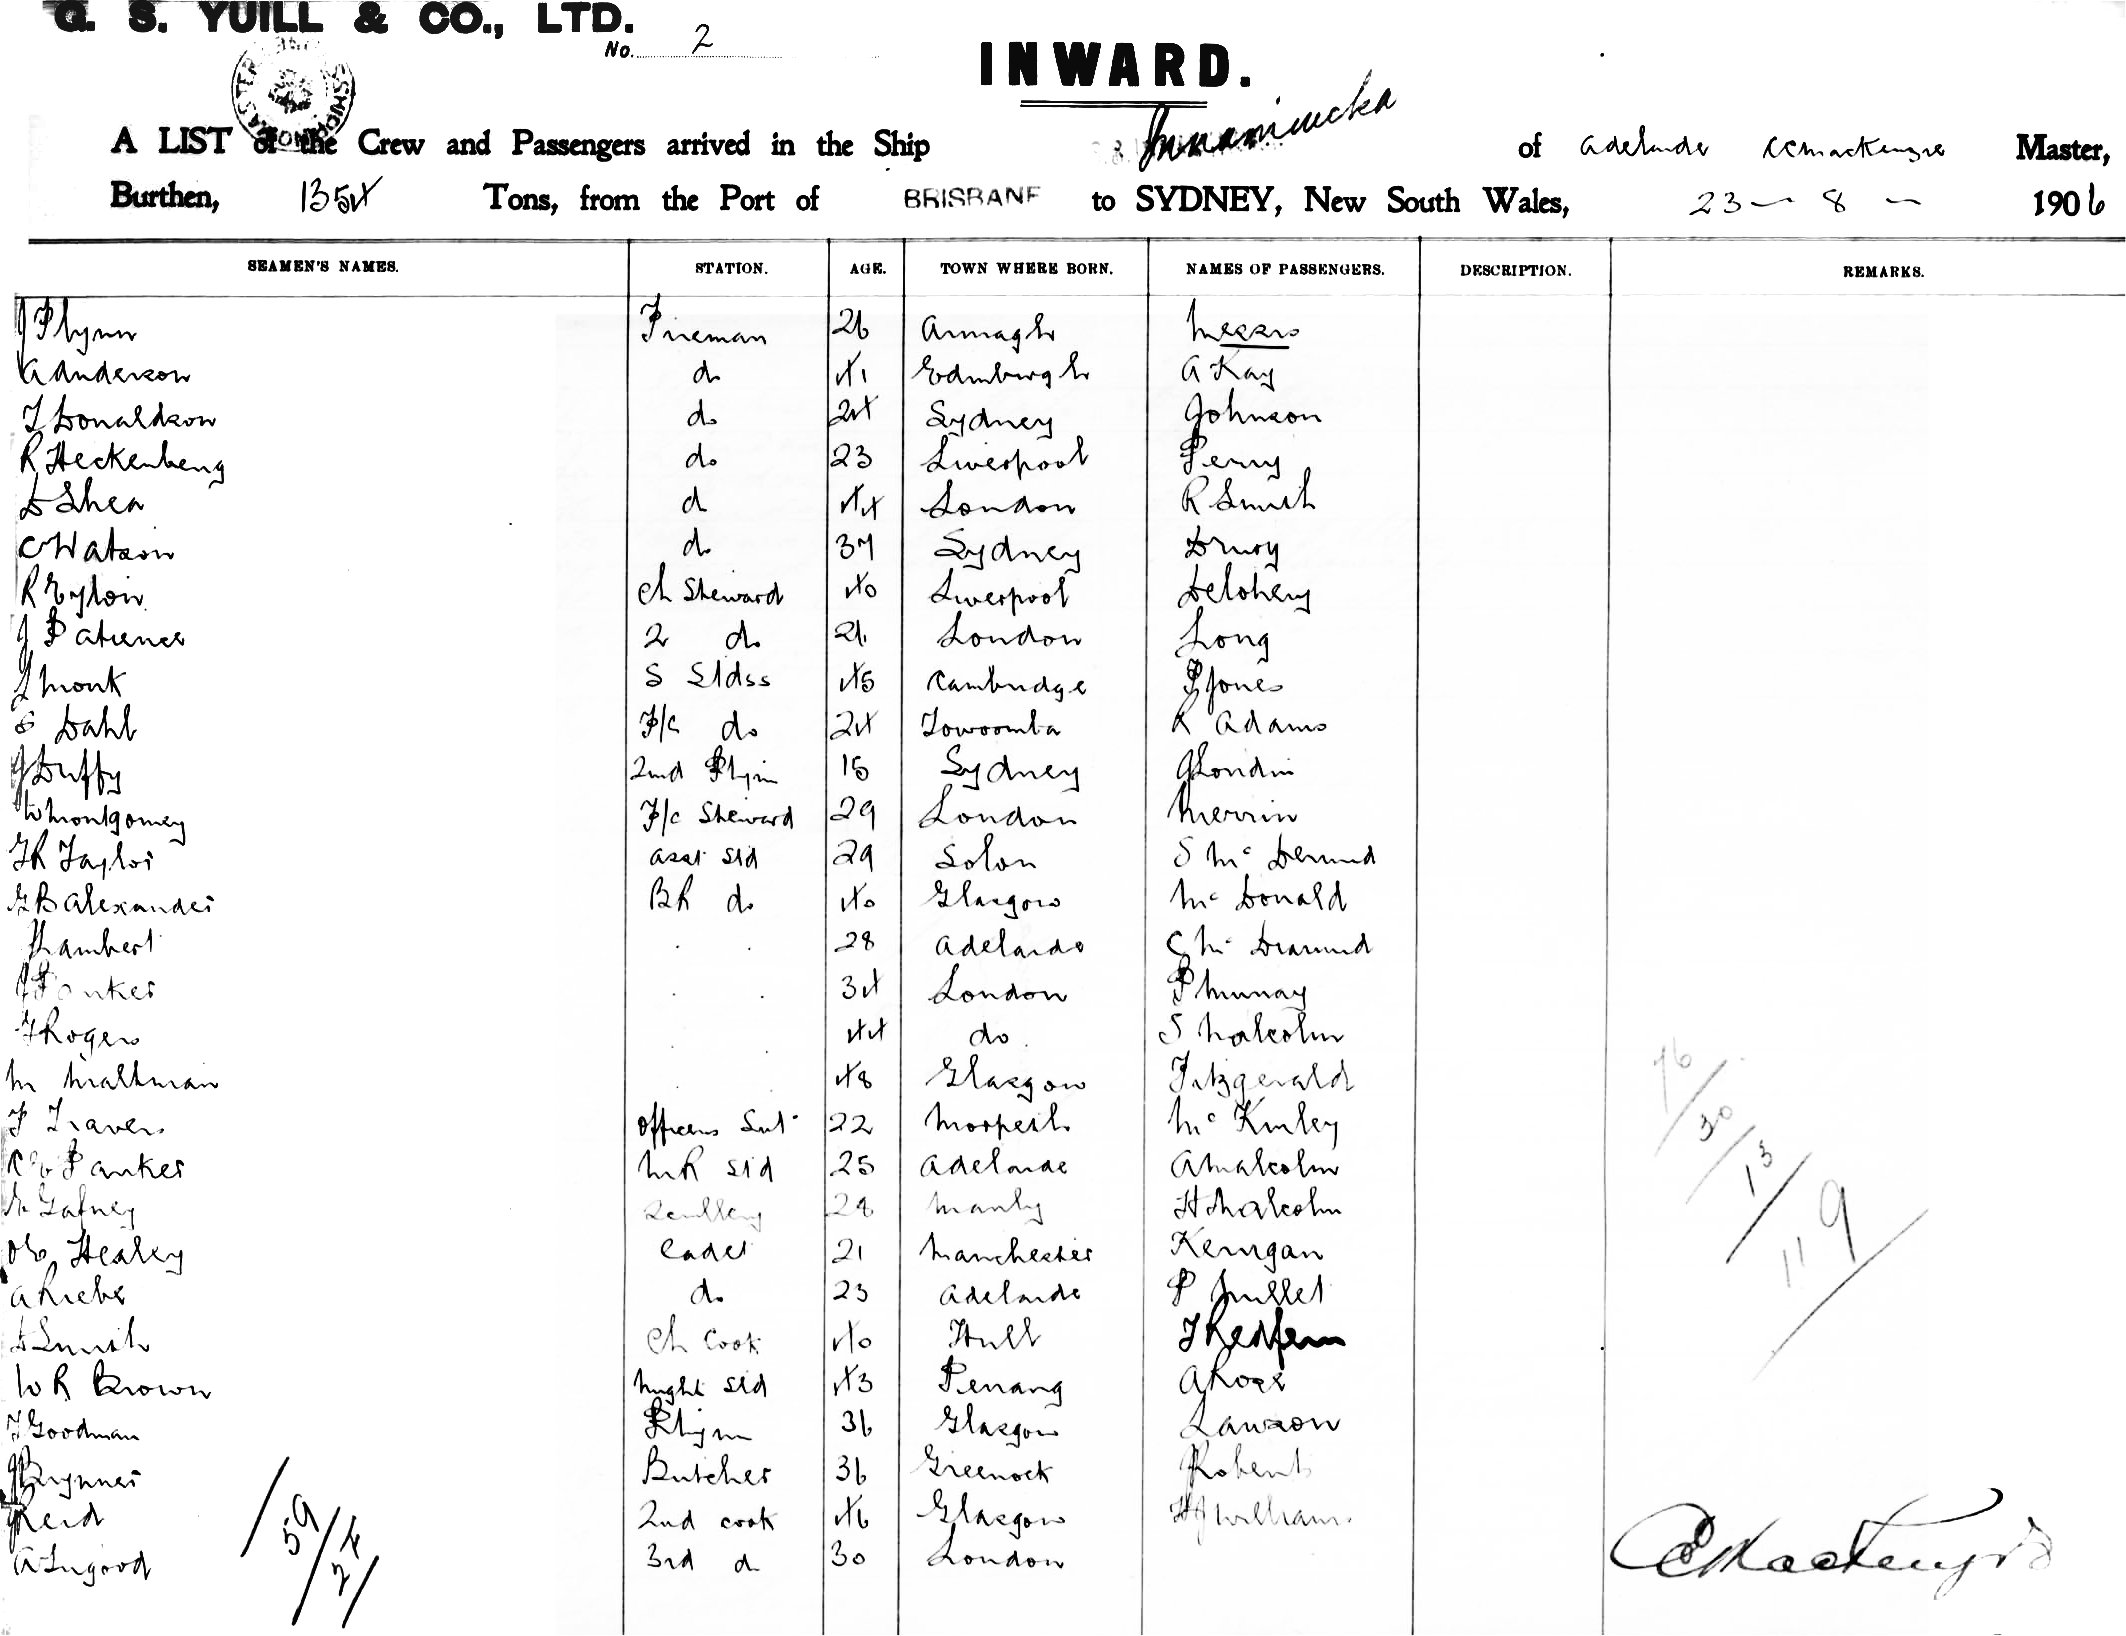 G. S. YUILL & CO., LTD.
No. 2
INWARD.
A LIST of the Crew and Passengers arrived in the Ship Innamincka of Adelaide C C Mackenzie Master,
Burthen, 1354 Tons, from the Port of BRISBANE to SYDNEY, New South Wales, 23 - 8 - 1906
SEAMEN'S NAMES. STATION. AGE. TOWN WHERE BORN. NAMES OF PASSENGERS. DESCRIPTION. REMARKS.
J Flynn Fireman 26 Armagh Messrs
A Anderson do 41 Edinburgh A Kay
T Donaldson do 24 Sydney Johnson
R Heckenberg do 23 Liverpool Perry
D Shea d 44 London R Smith
C Watson do 37 Sydney Drury
R Eylon Ch Steward 40 Liverpool Delohery
J Patience 2 do 21 London Long
L Monk S Stdss 45 Cambridge P Jones
S Dahl F/C do 24 Towoomba R Adams
J Duffy 2nd 15 Sydney J Londin
W Montgomey F/C Steward 29 London Merrin
Taylor Asst Std 29 Solon S Mc Dermid
G B Alexander BR do 40 Glasgow Mc Donald
Lambert 28 Adelaide C Mc Diarmid
J Fowkes 34 London P Murray
T Rogers 44 do S Malcolm
M Maltman 48 Glasgow Fitzgerald
F Travers Officers Svt 22 Morpeth Mc Kinley
Parker M R Std 25 Adelaide A Malcolm
Gafney Scullery 28 Manly H Malcolm
Healey Cadet 21 Manchester Kerrigan
A Riebe do 23 Adelaide P Mullet
D Smith Ch Cook 40 Hull T Redfern
W R Brown Night Std 43 Penang A Rose
T Goodman 36 Glasgow Lawson
J Brynner Butcher 36 Greenock Roberts
Reid 2nd cook 46 Glasgow H J Williams
A Ingood 3rd d 30 London
76/
30/
13/
119/
/59/24/
C C Mackenzie